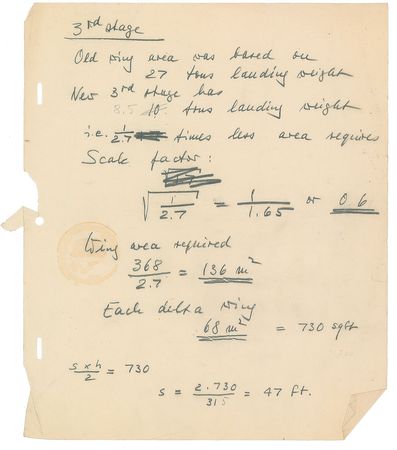 3rd stage
Old wing area was based on
27 tons landing weight
New 3rd stage has
8.5 10 tons landing weight
i.e. 1/2.7 times less area requires
Scale factor:
√(1/2.7) = 1/1.65 or 0.6
Wing area required
368/2.7 = 136 m²
Each delta wing
68 m² = 730 sqft
s x h/2 = 730
s = 2.730/315 = 47 ft.